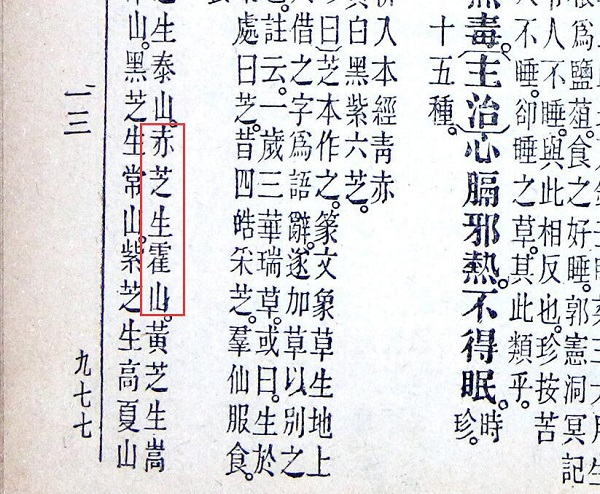 鹽葅。食之好睡。郭憲洞冥記
人不睡。與此相反也。珍按苦
人不睡。卻睡之草。其此類乎。
無毒。〔主治〕心膈邪熱。不得眠。時珍。
十五種。
入本經青赤
白黑紫六芝。
曰〕芝本作之。篆文象草生地上
人借之字為語辭。遂加草以別之
也。註云。一歲三華瑞草。或曰。生於
處曰芝。昔四皓采芝。羣仙服食。
芝生泰山。赤芝生霍山。黃芝生嵩
山。黑芝生常山。紫芝生高夏山
一三
九七七